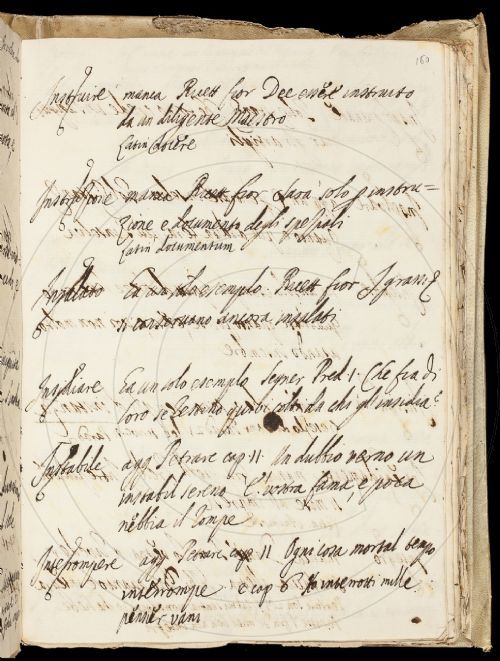 160
Instruire manca Ricett fior Dee esser instruito
da un diligente Maestro
Latin docere
Instruzione manca Ricett fior Sarà solo p instru=
zione e documento degli speziali
Latin documentum
Insalato Ha un solo esempio. Ricett fior I granci
si conservano ancora insalati
Insidiare Ha un solo esempio Segner Pred 1. Che fia di
loro se zettino quivi da chi gl'insidia?
Instabile agg Petrarc cap 11. Un dubbio verno un
instabil sereno E' vostra fama, e poca
nebbia il rompe
Interrompere agg Petrarc cap 11 Ogni cosa mortal tempo
interrompe e cap 8 Ho interrotti mille
pensier vani